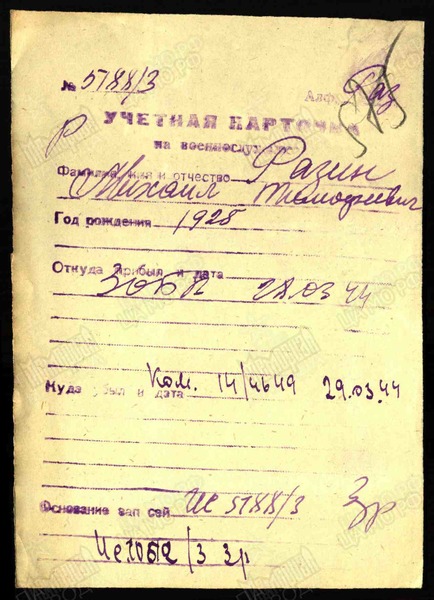 № 5188/3
Алф. Раз
УЧЕТНАЯ КАРТОЧКА
на военнослужащего
Р
Фамилия, имя и отчество Разин
Михаил Тимофеевич
Год рождения 1925
Откуда прибыл и дата
ЗОБП 28.03.44
Куда убыл и дата Ком. 14/4649 29.03.44
Основание зап сей Ис 5188/3 Зр
Ис 1052/3 Зр